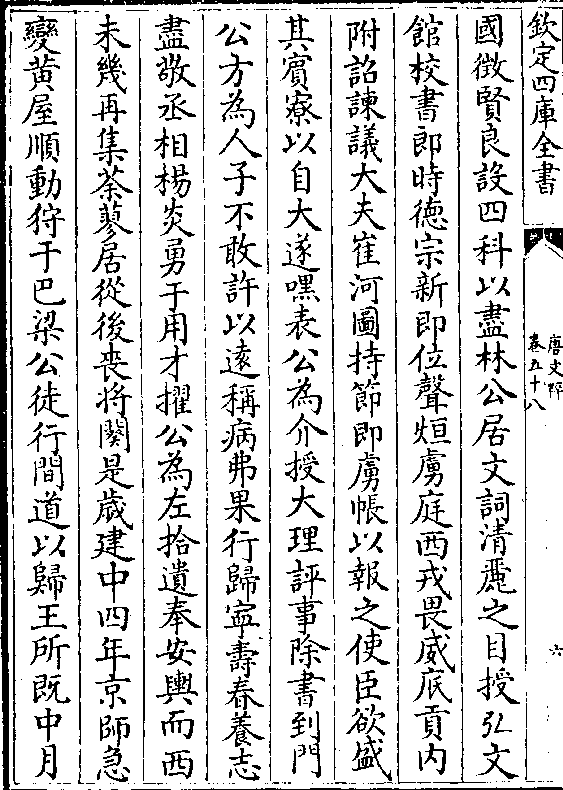 欽定四庫全書
唐文粹
卷五十八
六
國徴賢良設四科以盡林公居文詞清麗之目授弘文
館校書郎時德宗新即位聲烜虜庭西戎畏威底貢内
附詔諫議大夫崔河圖持節即虜帳以報之使臣欲盛
其賓寮以自大遂嘿表公為介授大理評事除書到門
公方為人子不敢許以逺稱病弗果行歸寧壽春養志
盡敬丞相楊炎勇于用才擢公為左拾遺奉安輿而西
未幾再集荼蓼居從後喪將闋是歳建中四年京師急
變黄屋順動狩于巴梁公徒行間道以歸王所既中月